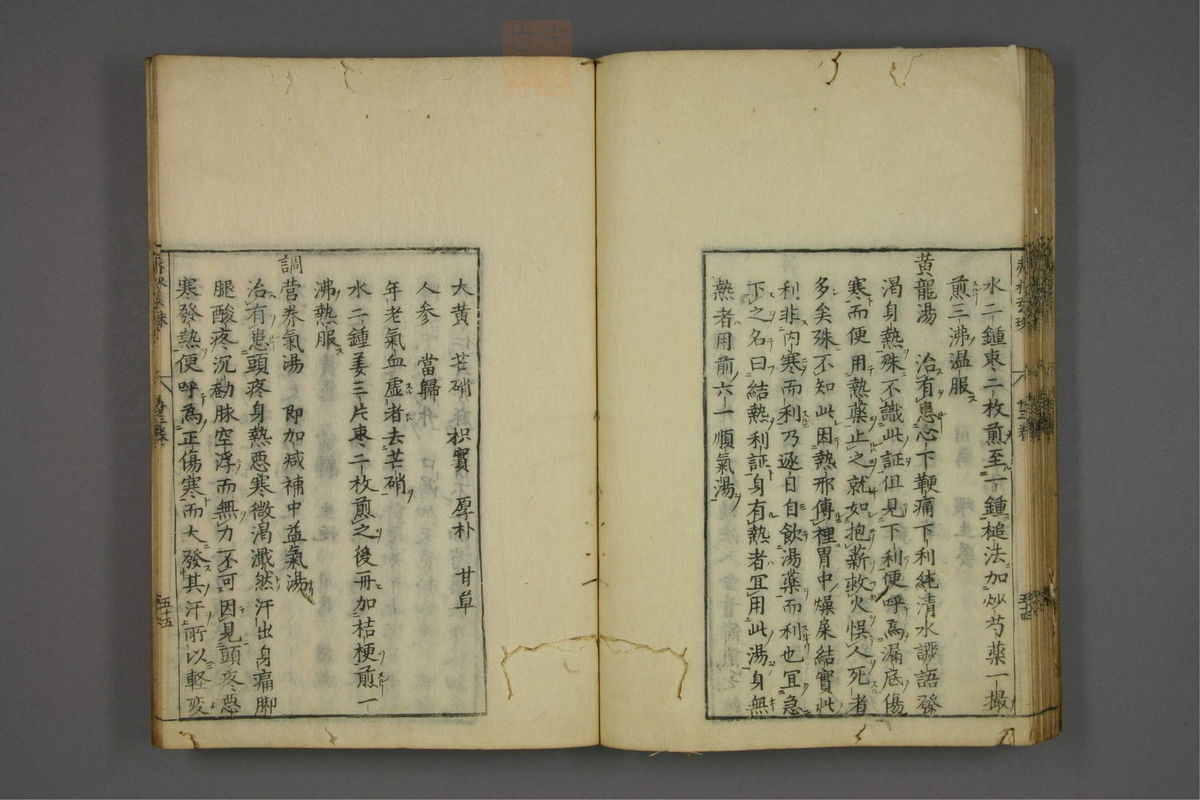 水二鍾枣二枚煎至一鍾槌法加炒芍薬一撮
煎三沸温服
黄龍湯　治有患心下鞕痛下利純清水譫語發
渇身熱殊不識此証但見下利便呼爲漏底傷
寒而便用熱薬止之就如抱薪救火悮人死者
多矣殊不知此因熱邪傳裡胃中燥屎結實此
利非内寒而利乃逐日自飲湯薬而利也宜急
下之名曰結熱利証身有熱者宜用此湯身無
熱者用前六一順氣湯
大黄　芒硝　枳實　厚朴　甘草
人参　當歸
年老氣血虚者去芒硝
水二鍾姜三片枣二枚煎之後冊加桔梗煎一
沸熱服
調营养氣湯　即加减補中益氣湯
治有患頭疼身熱悪寒微渇濈然汗出身痛脚
腿酸疼沉勧脉空浮而無力不可因見頭疼悪
寒發熱便呼爲正傷寒而大發其汗所以軽変
五十五